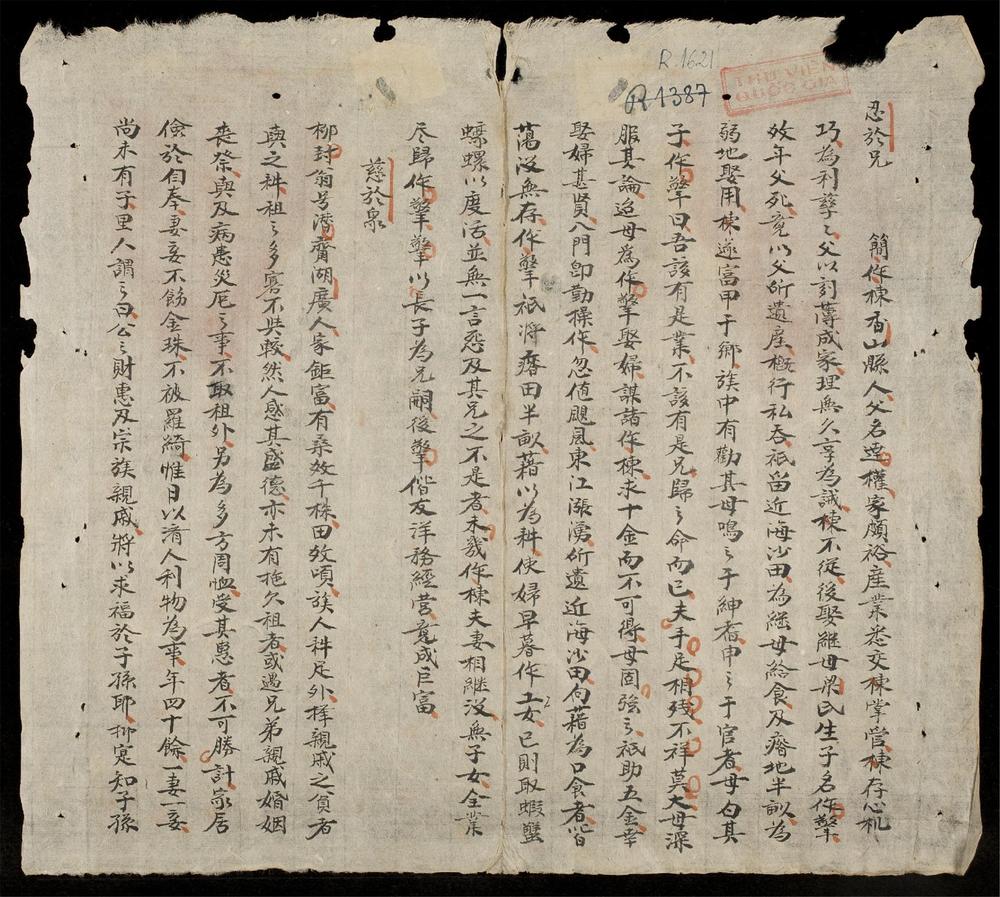 R.1621
R.1387
THƯ VIỆN
QUỐC GIA
忍於兄
簡作棟香山縣人父名運權家頗裕産業悉交棟掌管棟存心机
巧為利孳〻父以刻薄成家理無久享為誡棟不從後娶継母梁氏生子名作擎
效年父死竟以父所遺産概行私吞祇留近海沙田為継母給食及瘠地半畝為
弱地娶用棟遂富甲于鄉族中有勸其母鳴之于紳耆申之于官者母曰其
子作擎曰吾該有是業不該有是兄歸之命而已夫手足相残不祥莫大母深
服其論迨母為作擎娶婦謀諸作棟求十金而不可得母固強之祇助五金幸
娶婦甚賢入門即勤操作忽值颶風東江漲湧所遺近海沙田向藉為口食者皆
蕩没無存作擎祇將瘠田半畝藉以為耕使婦早暮作工女已則取蝦蟹
蠔螺以度活並無一言怨及其兄之不是者未幾作棟夫妻相継没無子女全業
尽歸作擎擎以長子為兄嗣後擎偕友洋務經营竟成巨富
慈於衆
柳封翁号潜齋湖廣人家鉅富有桑效千株田效頃族人耕足外擇親戚之貧者
與之耕租之多寡不共較然人感其盛德亦未有拖欠租者或遇兄弟親戚婚姻
喪祭與及病患災厄之事不取租外另為多方周恤受其惠者不可勝計家居
儉於自奉妻妾不飭金珠不被羅綺惟日以済人利物為事年四十餘一妻一妾
尚未有子里人謂之曰公之財惠及宗族親戚將以求福於子孫耶抑寔知子孫